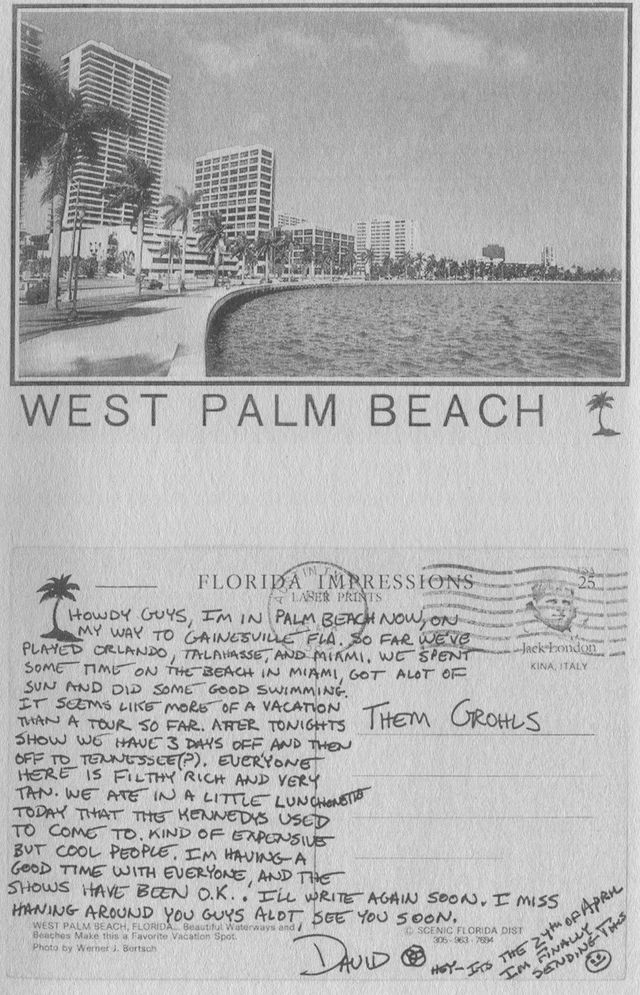 WEST PALM BEACH
FLORIDA IMPRESSIONS
LASER PRINTS
25
Jack London
KINA, ITALY
HOWDY GUYS, I'M IN PALM BEACH NOW, ON
MY WAY TO GAINESVILLE FLA. SO FAR WE'VE
PLAYED ORLANDO, TALAHASSE, AND MIAMI. WE SPENT
SOME TIME ON THE BEACH IN MIAMI, GOT ALOT OF
SUN AND DID SOME GOOD SWIMMING.
IT SEEMS LIKE MORE OF A VACATION
THAN A TOUR SO FAR. AFTER TONIGHTS
SHOW WE HAVE 3 DAYS OFF AND THEN
OFF TO TENNESSEE(?). EVERYONE
HERE IS FILTHY RICH AND VERY
TAN. WE ATE IN A LITTLE LUNCHONETTE
TODAY THAT THE KENNEDYS USED
TO COME TO. KIND OF EXPENSIVE
BUT COOL PEOPLE. I'M HAVING A
GOOD TIME WITH EVERYONE, AND THE
SHOWS HAVE BEEN O.K.. I'LL WRITE AGAIN SOON. I MISS
HANING AROUND YOU GUYS ALOT, SEE YOU SOON.
DAVID
THEM GROHLS
WEST PALM BEACH, FLORIDA... Beautiful Waterways and
Beaches Make this a Favorite Vacation Spot.
Photo by Werner J. Bertsch
© SCENIC FLORIDA DIST
305-963-7694
HEY- ITS THE 24TH OF APRIL
I'M FINALLY
SENDING THIS